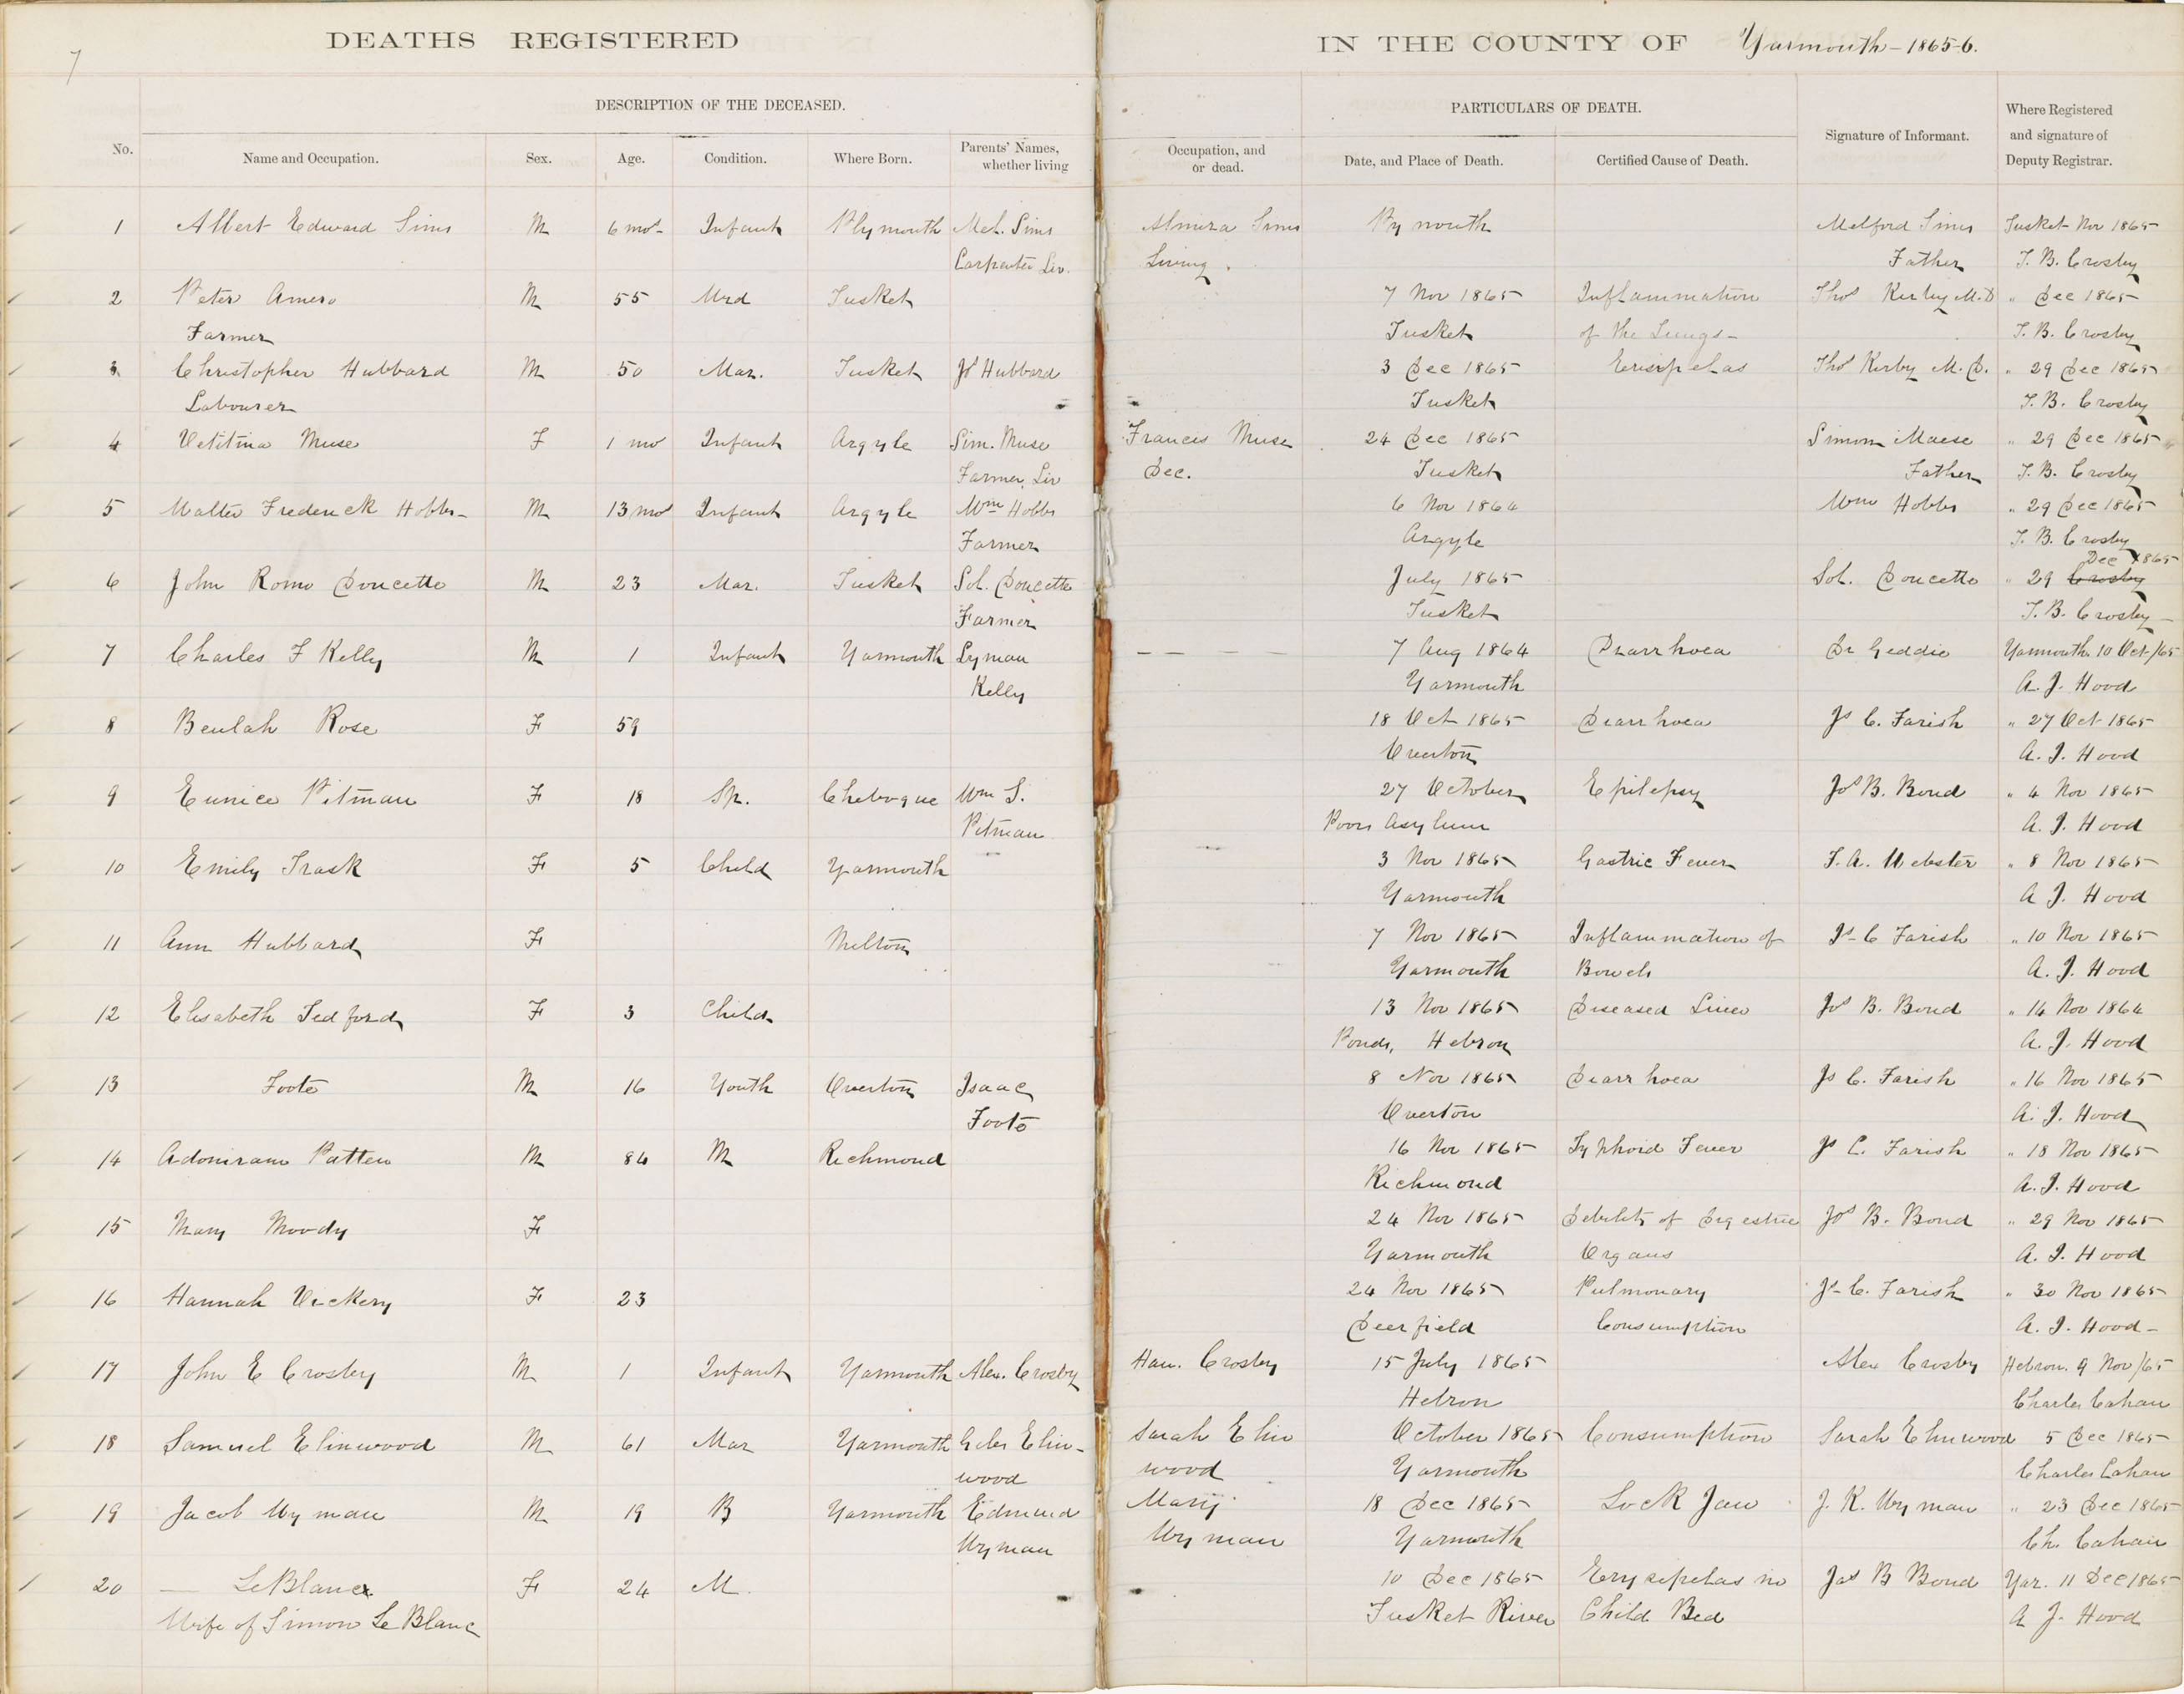 7
DEATHS REGISTERED IN THE COUNTY OF Yarmouth - 1865-6.
DESCRIPTION OF THE DECEASED. PARTICULARS OF DEATH.
No. Name and Occupation. Sex. Age. Condition. Where Born. Parents' Names, whether living Occupation, and or dead. Date, and Place of Death. Certified Cause of Death. Signature of Informant. Where Registered and signature of Deputy Registrar.
1 Albert Edward Sims M 6 mos Infant Plymouth Mel. Sims Almira Sims Plymouth Melford Sims Tusket Nov 1865
Carpenter Liv. Living. Father T. B. Crosby
2 Peter Amero M 55 Mrd Tusket 7 Nov 1865 Inflammation Thos Kirby M.D " Dec 1865
Farmer Tusket of the Lungs - T. B. Crosby
3 Christopher Hubbard M 50 Mar. Tusket Js Hubbard 3 Dec 1865 Erisipelas Thos Kirby M. D. " 29 Dec 1865
Labourer Tusket T. B. Crosby
4 Muse F 1 mo Infant Argyle Sim. Muse Frances Muse 24 Dec 1865 Simon Muese " 29 Dec 1865
Farmer, Liv Dec. Tusket Father T. B. Crosby
5 Walter Frederick Hobbs - M 13 mos Infant Argyle Wm Hobbs 6 Nov 1864 Wm Hobbs " 29 Dec 1865
Farmer Argyle T. B. Crosby
Dec 1865
6 John Romo Doucette M 23 Mar. Tusket Sol. Doucette July 1865 Sol. Doucette " 29 Crosby
Farmer Tusket T. B. Crosby -
7 Charles F Kelly M 1 Infant Yarmouth Lyman - - - - 7 Aug 1864 Diarrhoea Dr Geddie Yarmouth. 10 Oct/65
Kelly Yarmouth A. J. Hood
8 Beulah Rose F 59 18 Oct 1865 Diarrhoea Js C. Farish " 27 Oct 1865
Overton A. J. Hood
9 Eunice Pitman F 18 Sp. Chebogue Wm S. 27 October Epilepsy Jos B. Bond " 4 Nov 1865
Pitman Poors Asylum A. J. Hood
10 Emily Trask F 5 Child Yarmouth 3 Nov 1865 Gastric Fever F. A. Webster " 8 Nov 1865
Yarmouth A J. Hood
11 Ann Hubbard F Milton 7 Nov 1865 Inflammation of Js C Farish " 10 Nov 1865
Yarmouth Bowels A. J. Hood
12 Elisabeth Tedford F 3 Child 13 Nov 1865 Diseased Liver Jos B. Bond " 14 Nov 1864
Ponds, Hebron A. J. Hood
13 Foote M 16 Youth Overton Isaac 8 Nov 1865 Diarrhoea Js C. Farish " 16 Nov 1865
Foote Overton A. J. Hood
14 Adoniram Patten M 84 M Richmond 16 Nov 1865 Typhoid Fever Js C. Farish " 18 Nov 1865
Richmond A. J. Hood
15 Mary Moody F 24 Nov 1865 Debility of Digestive Jos B. Bond " 29 Nov 1865
Yarmouth Organs A. J. Hood
16 Hannah Vickery F 23 24 Nov 1865 Pulmonary Js C. Farish " 30 Nov 1865
Deerfield Consumption A. J. Hood -
17 John E Crosby M 1 Infant Yarmouth Alex. Crosby Han. Crosby 15 July 1865 Alex Crosby Hebron. 9 Nov/65
Hebron Charles Cahan
18 Samuel Elinwood M 61 Mar Yarmouth Giles Elin- Sarah Elin October 1865 Consumption Sarah Elinwood 5 Dec 1865
wood wood Yarmouth Charles Cahan
19 Jacob Wyman M 19 B Yarmouth Edmund Mary 18 Dec 1865 Lock Jaw J. K. Wyman " 23 Dec 1865
Wyman Wyman Yarmouth Ch. Cahan
20 — LeBlanc F 24 M 10 Dec 1865 Erysipelas in Jos B Bond Yar. 11 Dec 1865
Wife of Simon Le Blanc Tusket River Child Bed A J. Hood